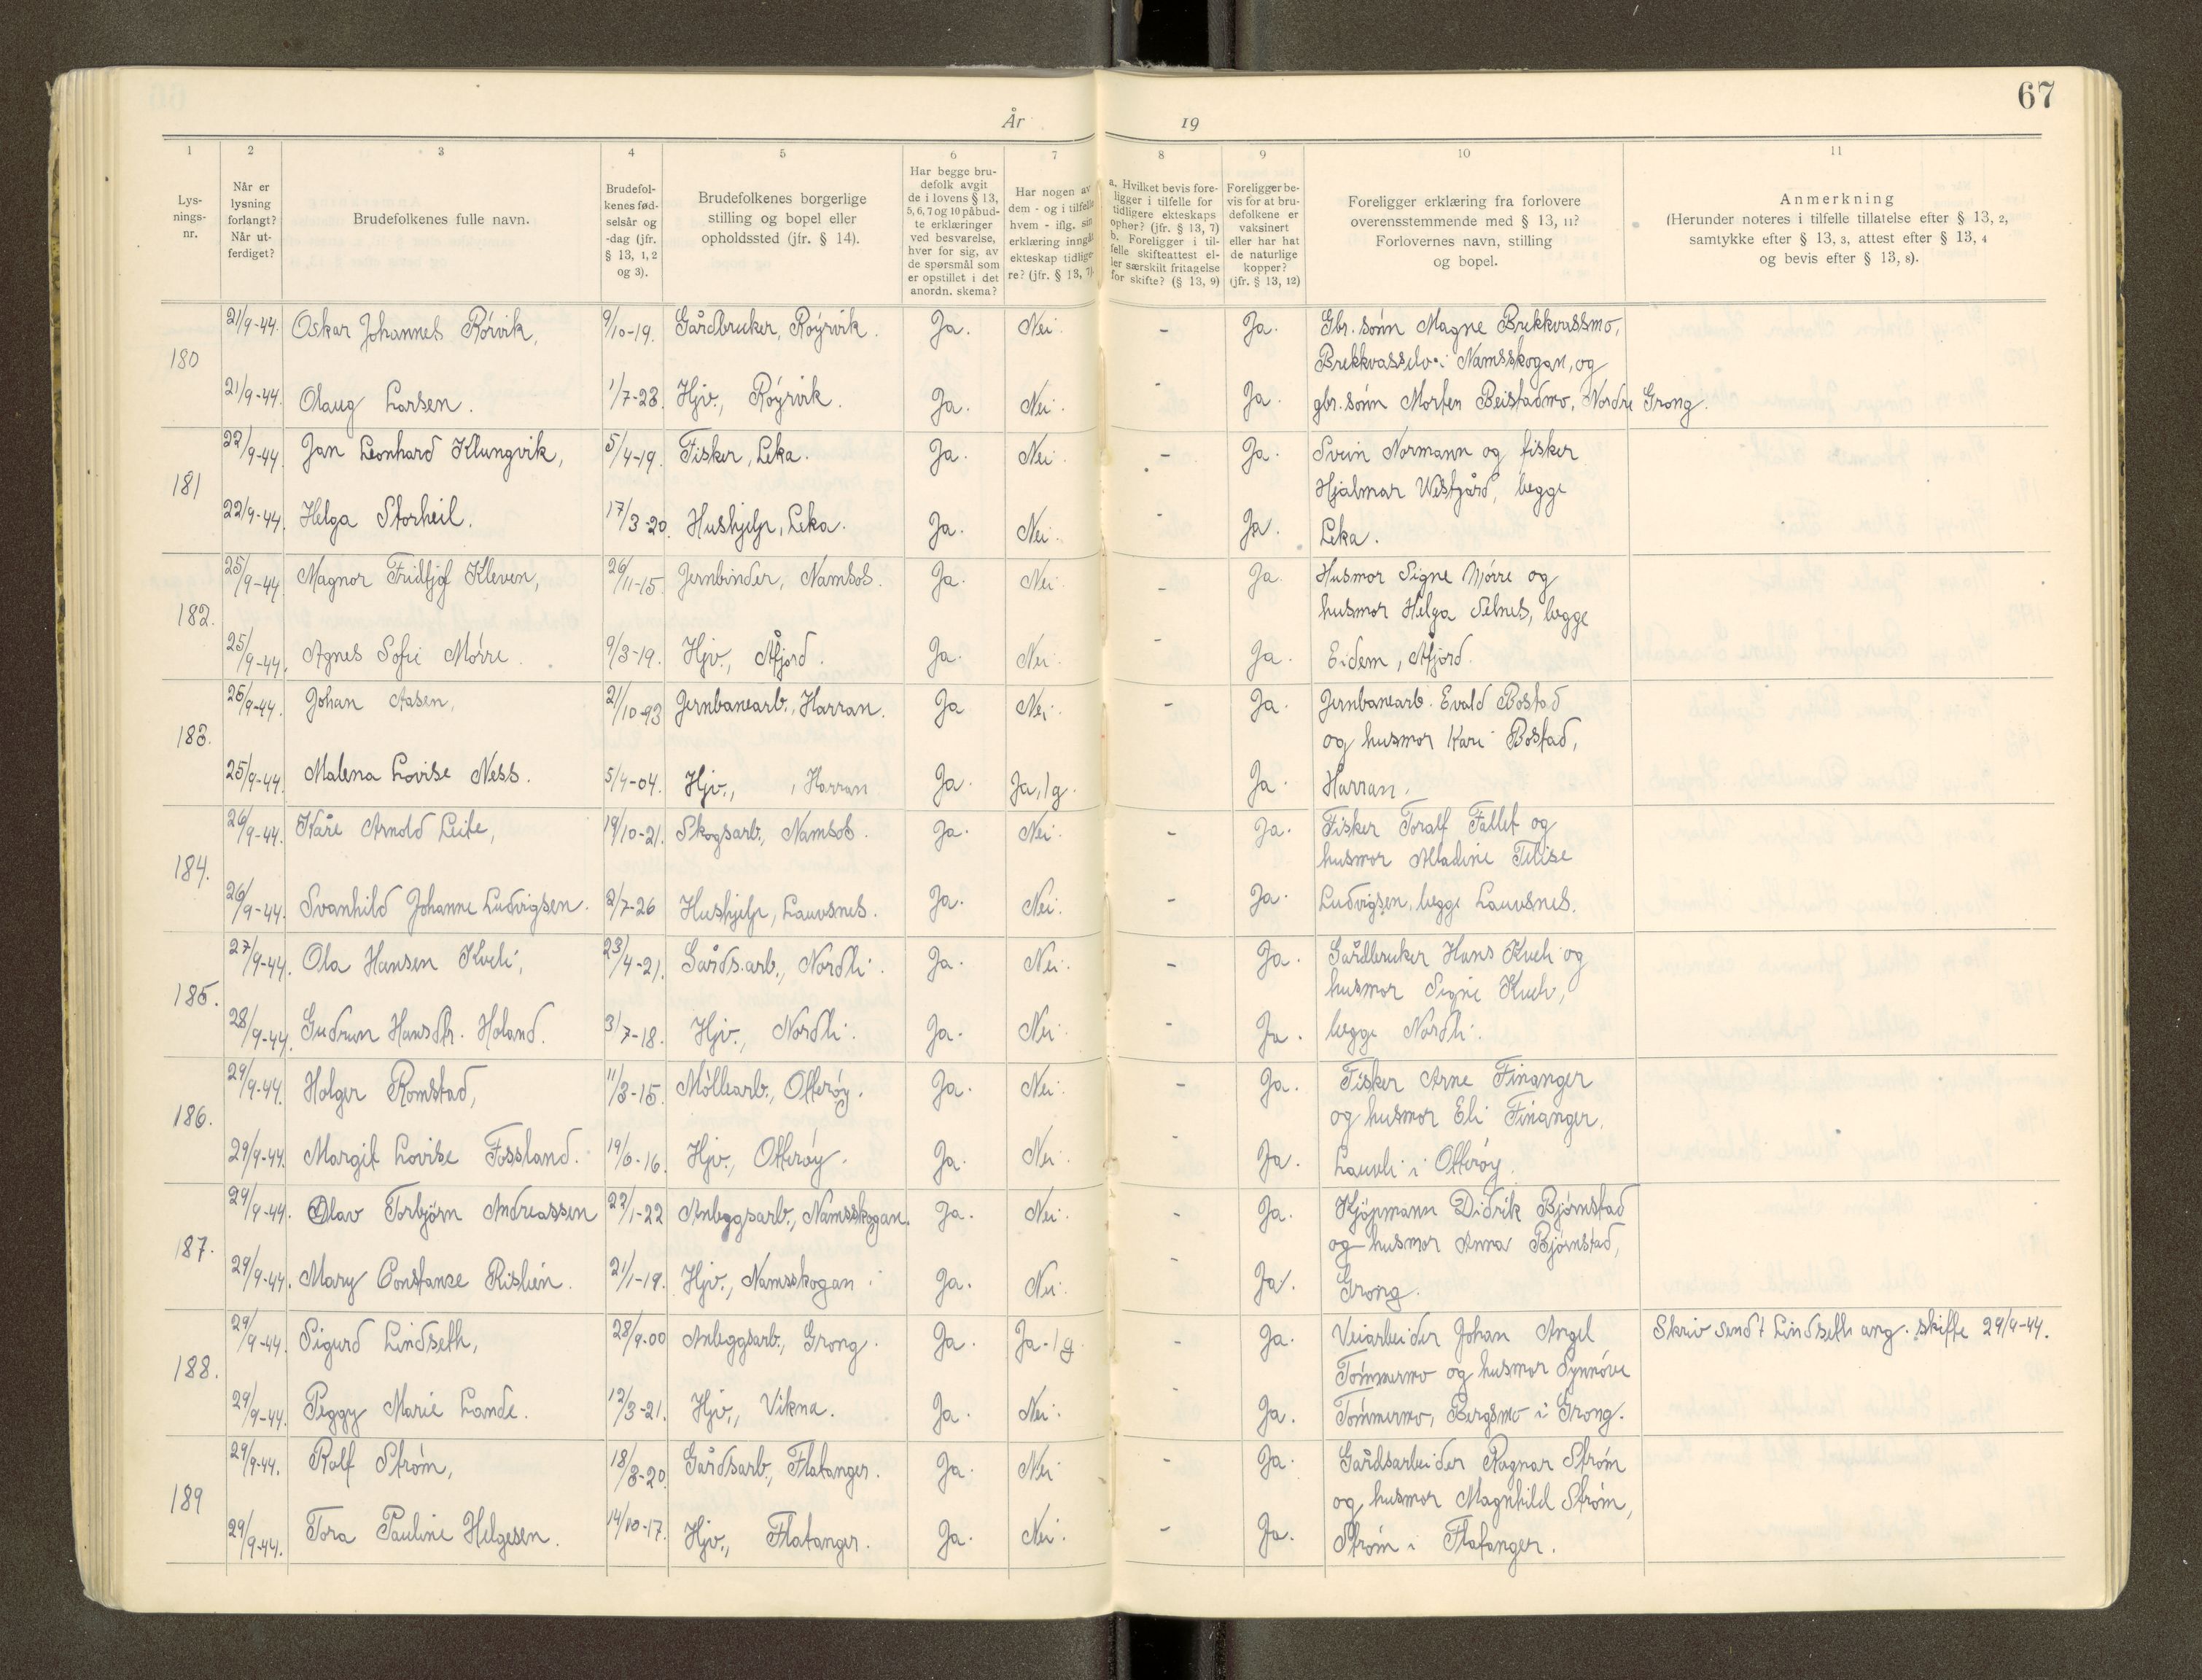 67
År 19
1 2 3 4 5 6 7 8 9 10 11
Lys-
nings-
nr.
Når er
lysning
forlangt?
Når ut-
ferdiget?
Brudefolkenes fulle navn.
Brudefol-
kenes fød-
selsår og
-dag (jfr.
§ 13, 1, 2
og 3).
Brudefolkenes borgerlige
stilling og bopel eller
opholdssted (jfr. § 14).
Har begge bru-
defolk avgit
de i lovens § 13,
5, 6, 7 og 10 påbud-
te erklæringer
ved besvarelse,
hver for sig, av
de spørsmål som
er opstillet i det
anordn. skema?
Har nogen av
dem - og i tilfelle
hvem - iflg. sin
erklæring inngåt
ekteskap tidlige-
re? (jfr. § 13, 7).
a. Hvilket bevis fore-
ligger i tilfelle for
tidligere ekteskaps
ophør? (jfr. § 13, 7)
b. Foreligger i til-
felle skifteattest el-
ler særskilt fritagelse
for skifte? (§ 13, 9)
Foreligger be-
vis for at bru-
defolkene er
vaksinert
eller har hat
de naturlige
kopper?
(jfr. § 13, 12)
Foreligger erklæring fra forlovere
overensstemmende med § 13, 11?
Forlovernes navn, stilling
og bopel.
Anmerkning
(Herunder noteres i tilfelle tillatelse efter § 13, 2,
samtykke efter § 13, 3, attest efter § 13, 4
og bevis efter § 13, 8).
180
21/9-44. Oskar Johannes Rörvik, 9/10-19. Gårdbruker, Röyrvik. Ja. Nei. - Ja. Gbr. sönn Magne Brekkvassmo,
Brekkvasselv i Namsskogan, og
21/9-44. Olaug Larsen. 1/7-23. Hjv., Röyrvik. Ja. Nei. - Ja. gbr. sönn Morten Beistadmo, Nordre Grong.
181
22/9-44 Jan Leonhard Klungvik, 5/4-19. Fisker, Leka. Ja. Nei. - Ja. Svein Normann og fisker
Hjalmar Westgård, begge
22/9-44. Helga Storheil. 17/3-20. Hushjelp, Leka. Ja. Nei. - Ja. Leka.
182.
25/9-44 Magnor Fridtjof Kleven, 26/11-15 Jernbinder, Namsos. Ja. Nei. - Ja. Husmor Signe Mörre og
husmor Helga Selnes, begge
25/9-44. Agnes Sofie Mörre. 9/3-19. Hjv., Åfjord. Ja. Nei. - Ja. Eidem, Åfjord.
183.
25/9-44. Johan Aasen, 21/10-93 Jernbanearb., Harran. Ja Nei. - Ja. Jernbanearb. Evald Bostad
og husmor Kari Bostad,
25/9-44. Malena Lovise Ness. 5/4-04. Hjv., Harran Ja. Ja, 1 g. Ja. Harran.
184.
26/9-44. Kåre Arnold Leite, 19/10-21. Skogsarb., Namsos. Ja. Nei. - Ja. Fisker Toralf Fallet og
husmor
26/9-44. Svanhild Johanne Ludvigsen. 2/7-26 Hushjelp, Lauvsnes. Ja. Nei. - Ja. Ludvigsen, begge Lauvsnes.
185.
27/9-44. Ola Hansen Kveli, 23/4-21. Gårdsarb., Nordli. Ja. Nei. - Ja. Gårdbruker Hans Kveli og
husmor Signe Kveli,
28/9-44. Gudrun Hansdtr. Holand. 3/7-18. Hjv., Nordli. Ja. Nei. - Ja. begge Nordli.
186.
29/9-44. Holger Romstad, 11/3-15. Möllearb., Otteröy. Ja. Nei. - Ja. Fisker Arne Finanger
og husmor Eli Finanger.
29/9-44. Margit Lovise Fossland. 19/6-16. Hjv., Otteröy. Ja. Nei. - Ja. Lauvli i Otteröy.
187.
29/9-44. Olav Torbjörn Andreassen 22/1-22 Anleggsarb., Namsskogan. Ja. Nei. - Ja. Kjöpmann Didrik Bjørnstad
og husmor Anna Bjørnstad,
29/9-44. Mary Constanse Rislien. 21/1-19. Hjv., Namsskogan. Ja. Nei. - Ja. Grong.
188.
29/9-44 Sigurd Lindseth, 28/9-00 Anleggsarb., Grong. Ja. Ja - 1 g. - Ja. Veiarbeider Johan Angel Skriv sendt Lindseth ang. skifte 29/9-44.
Tömmermo og husmor Synnöve
29/9-44. Peggy Marie Lande. 12/3-21. Hjv., Vikna. Ja. Nei. - Ja. Tömmermo, Bergsmo i Grong.
189
29/9-44. Rolf Strøm, 18/3-20. Gårdsarb., Flatanger. Ja. Nei. - Ja. Gårdsarbeider Ragnar Strøm
og husmor Magnhild Strøm,
29/9-44. Tora Pauline Helgesen. 14/10-17. Hjv., Flatanger. Ja. Nei. - Ja. Strøm i Flatanger.